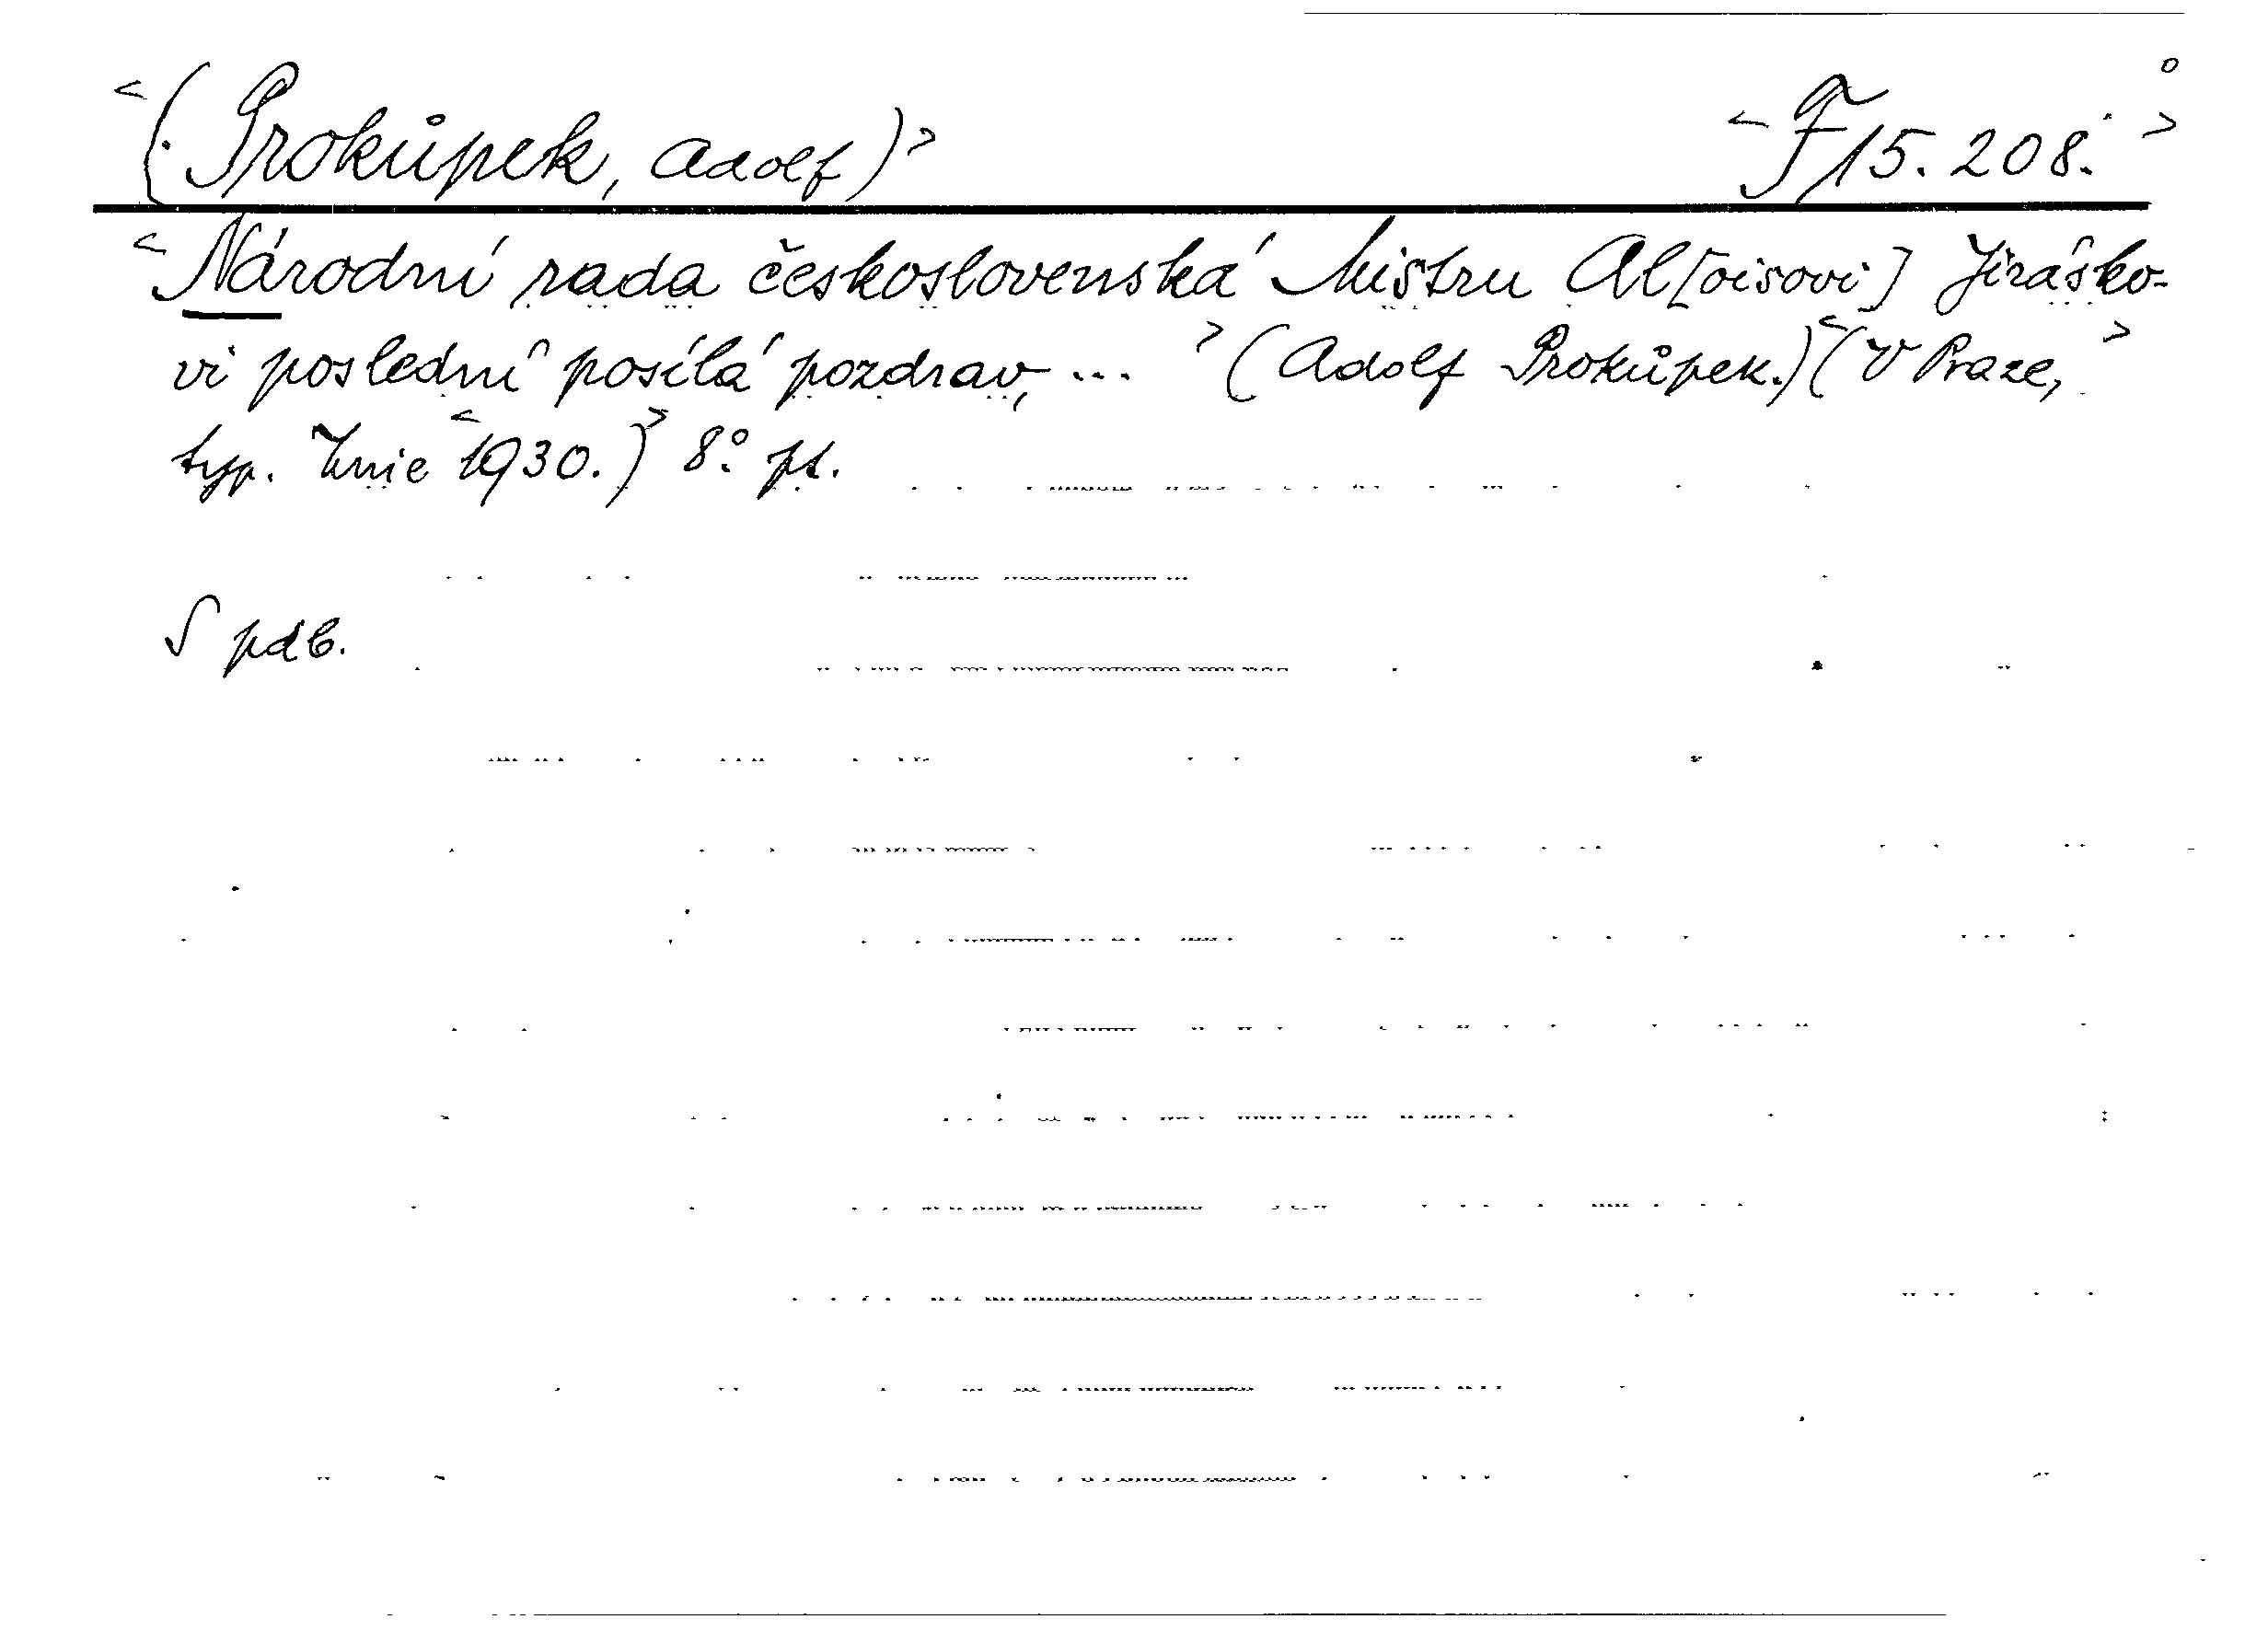 <(Prokůpek, Adolf)> <F 15.208.>
<Národní rada československá Mistru Al[oisovi] Jirásko-
vi poslední posílá pozdrav, ...> (Adolf Prokůpek.) <(V Praze,>
typ. Unie <1930.)> 8° pt.
S pdb.